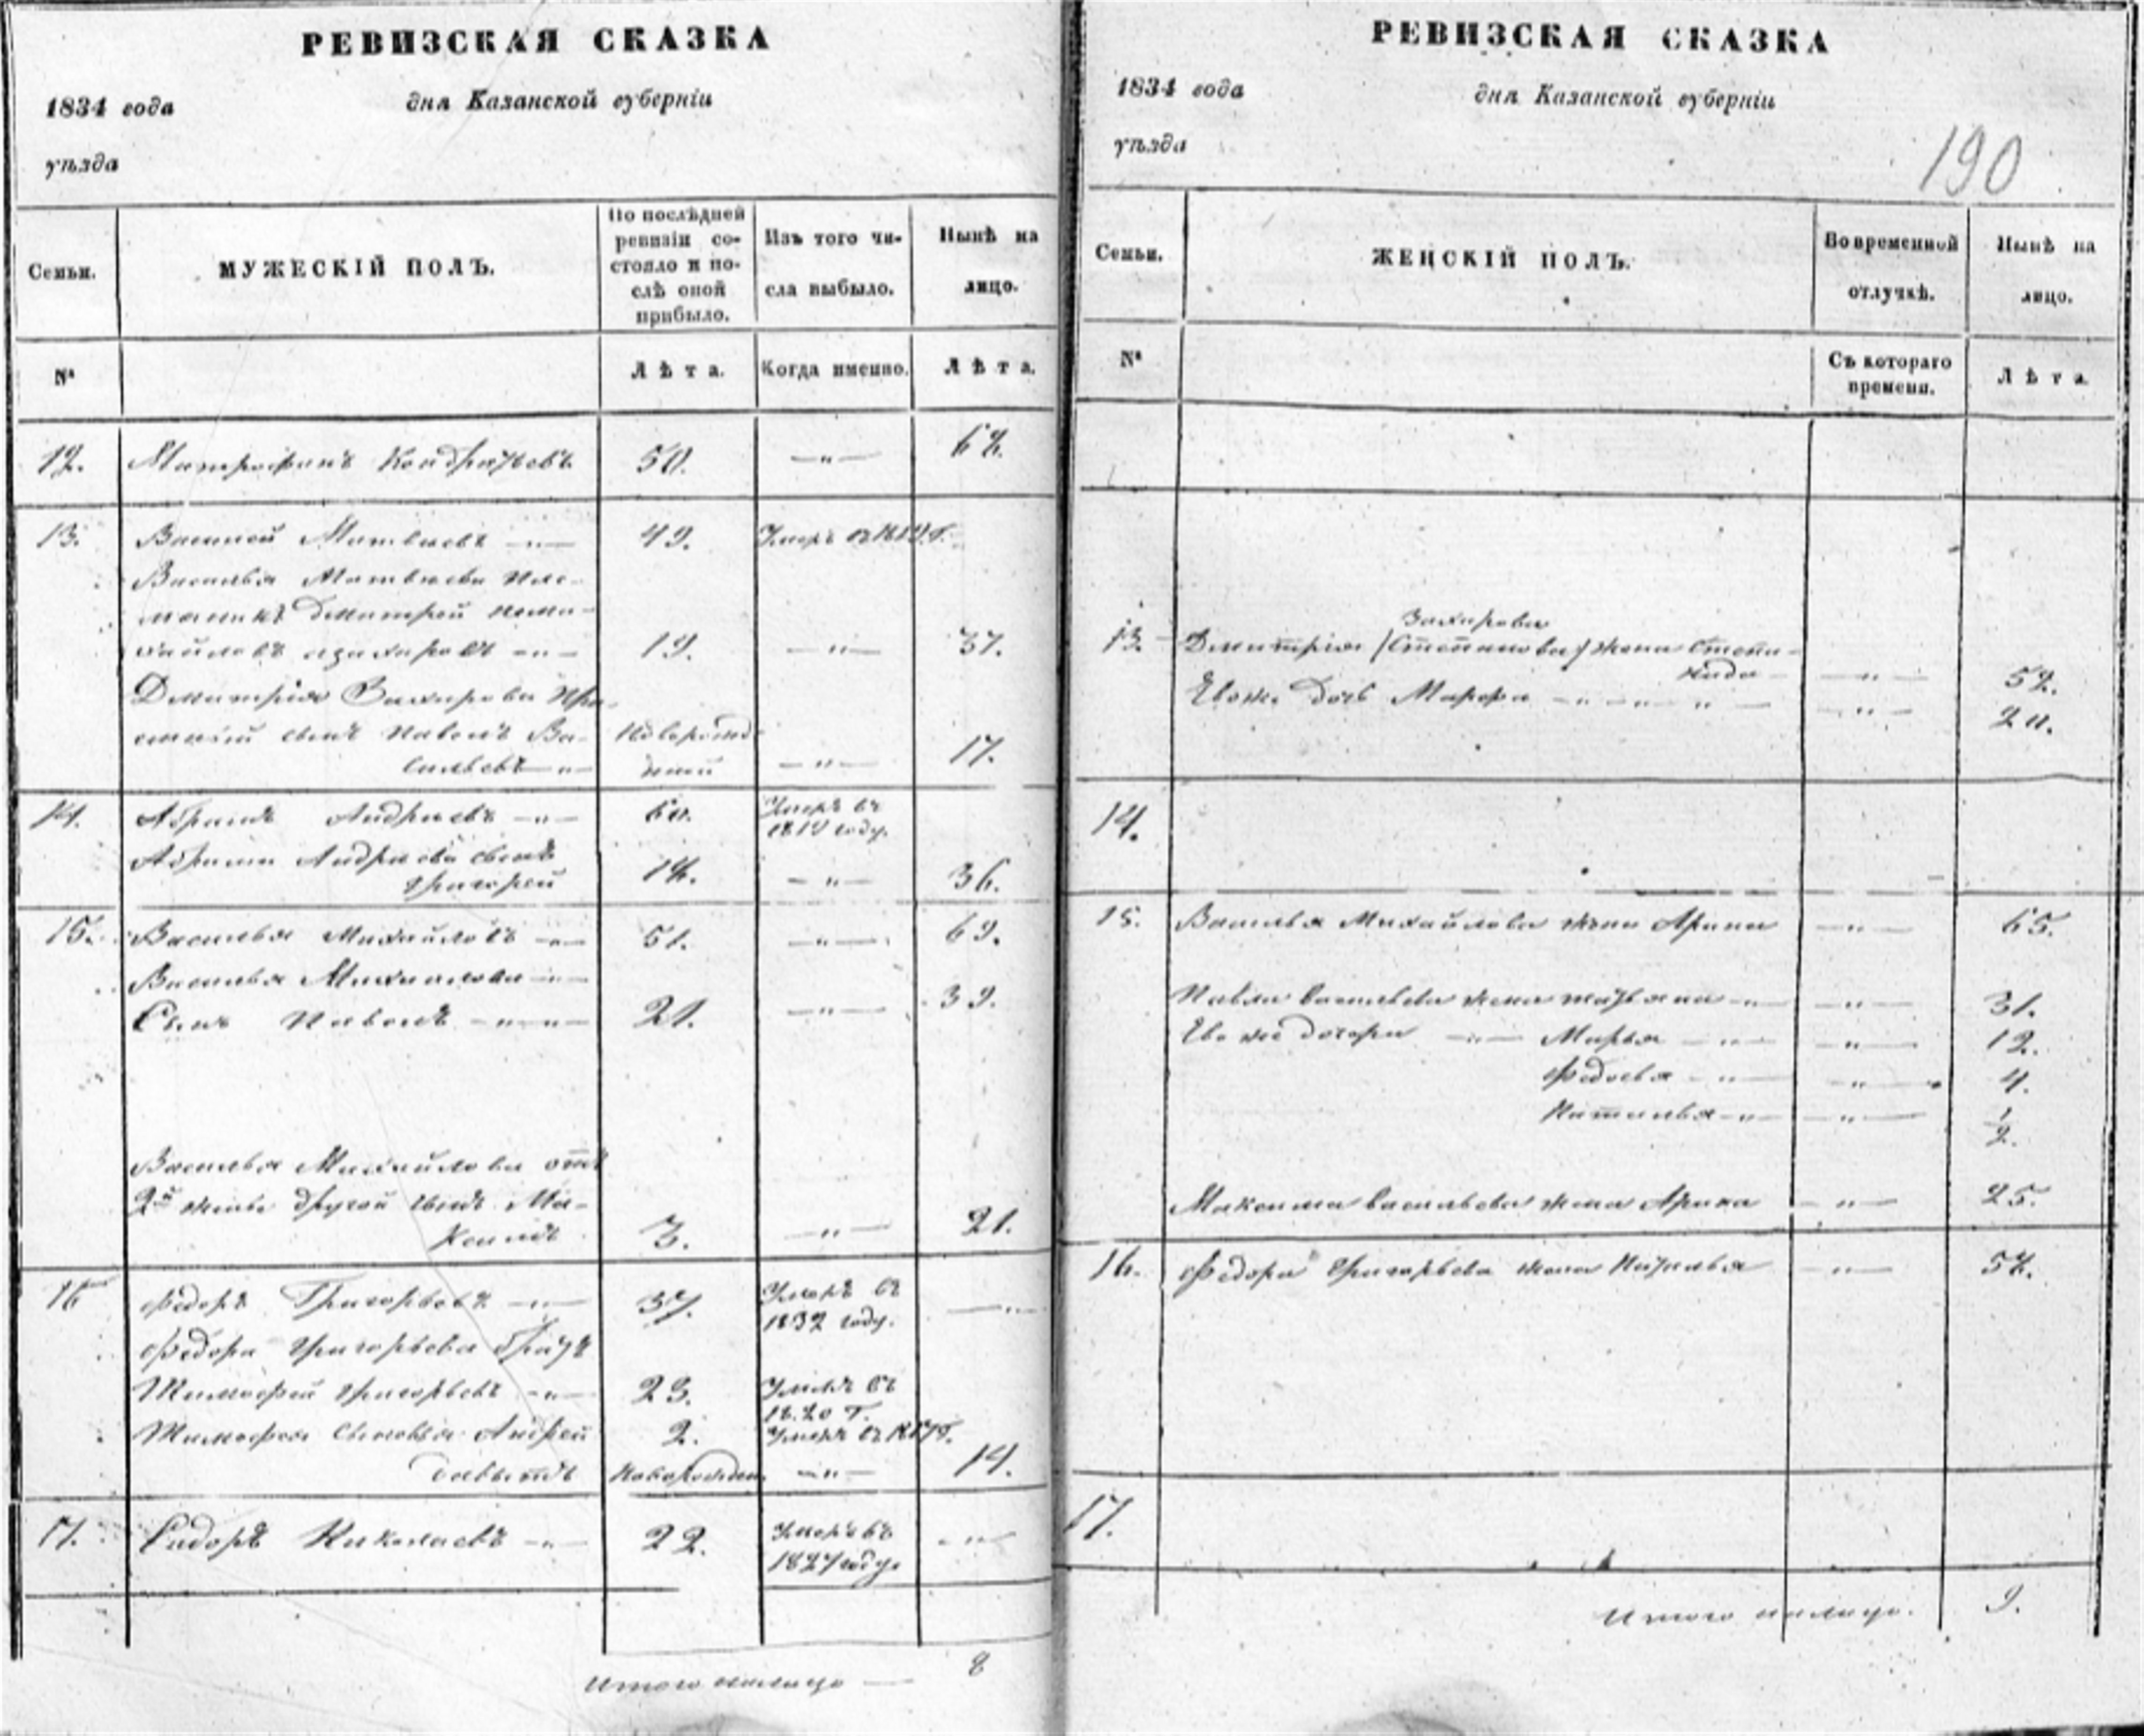 РЕВИЗСКАЯ СКАЗКА
1834 года дня Казанской губерніи
уѣзда
Семьи.
МУЖЕСКІЙ ПОЛЪ.
По послѣдней
ревизіи со-
стояло и по-
слѣ оной
прибыло.
Изъ того чи-
сла выбыло.
Нынѣ на
лицо.
№
Лѣта.
Когда именно.
Лѣта.
12. Митрофанъ Кондратьевъ 50. —"— 62.
13. Василей Матвѣевъ —"— 49. Умеръ въ
Василья Матвѣева пле-
Дмитрей
захаровъ —"— 19. —"— 37.
Дмитрія Захарова прі-
сынъ Павелъ Ва- Новорожд
сильевъ —"— —"— 17.
14. Абрамъ Андреевъ —"— 60. Умеръ въ
году.
Абрама Андреева сынъ
Григорей —"— 36.
15. Василья Михайловъ —"— 51. —"— 69.
Василья Михайлова —"—
Сынъ Павелъ —"—"— 21. —"— 39.
Василья Михайлова отъ
2й жены другой сынъ Ма-
ксимъ 3. —"— 21.
16 Федоръ Григорьевъ —"— 37. Умеръ въ
1832 году. —"—
Федора Григорьева братъ
Тимофей Григорьевъ —"— 23. Умеръ въ
1820 г.
Тимофея сыновья Андрей 2. Умеръ въ
давыдъ Новорожден. —"— 14.
17. Сидоръ Николаевъ —"— 22. Умеръ въ
1827 году. —"—
Итого налицо — 8
РЕВИЗСКАЯ СКАЗКА
1834 года дня Казанской губерніи
уѣзда
190
Семьи.
ЖЕНСКІЙ ПОЛЪ.
Во временной
отлучкѣ.
Нынѣ на
лицо.
№
Съ котораго
времени.
Лѣта.
Захарова
13. Дмитрія /Степанова/ жена Степа-
нида —"— 52.
Евоже дочь Марфа —"—"— —"— 20.
14.
15. Василья Михайлова жена Арина —"— 65.
Павла Васильева жена татьяна —"— —"— 31.
Евоже дочери —"— Марья —"— —"— 12.
Федосья —"— —"— 4.
Наталья —"— —"— 1/2.
Максима Васильева жена Арина —"— 25.
16. Федора Григорьева жена Наталья —"— 52.
17.
Итого налицо. 9.